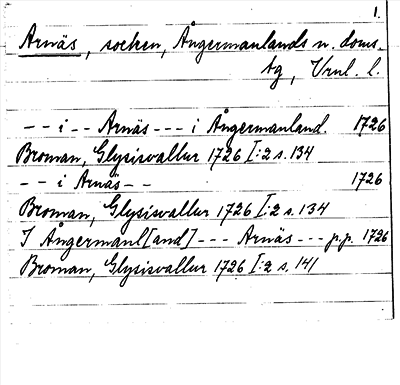 1.
Arnäs, socken, Ångermanlands n. doms.
tg, Vrnl. l.
-- i -- Arnäs --- i Ångermanland. 1726
Broman, Glysisvallur 1726 I:2 s. 134
-- i Arnäs -- 1726
Broman, Glysisvallur 1726 I:2 s. 134
I Ångermanl[and] --- Arnäs --- p.p. 1726
Broman, Glysisvallur 1726 I:2 s. 141